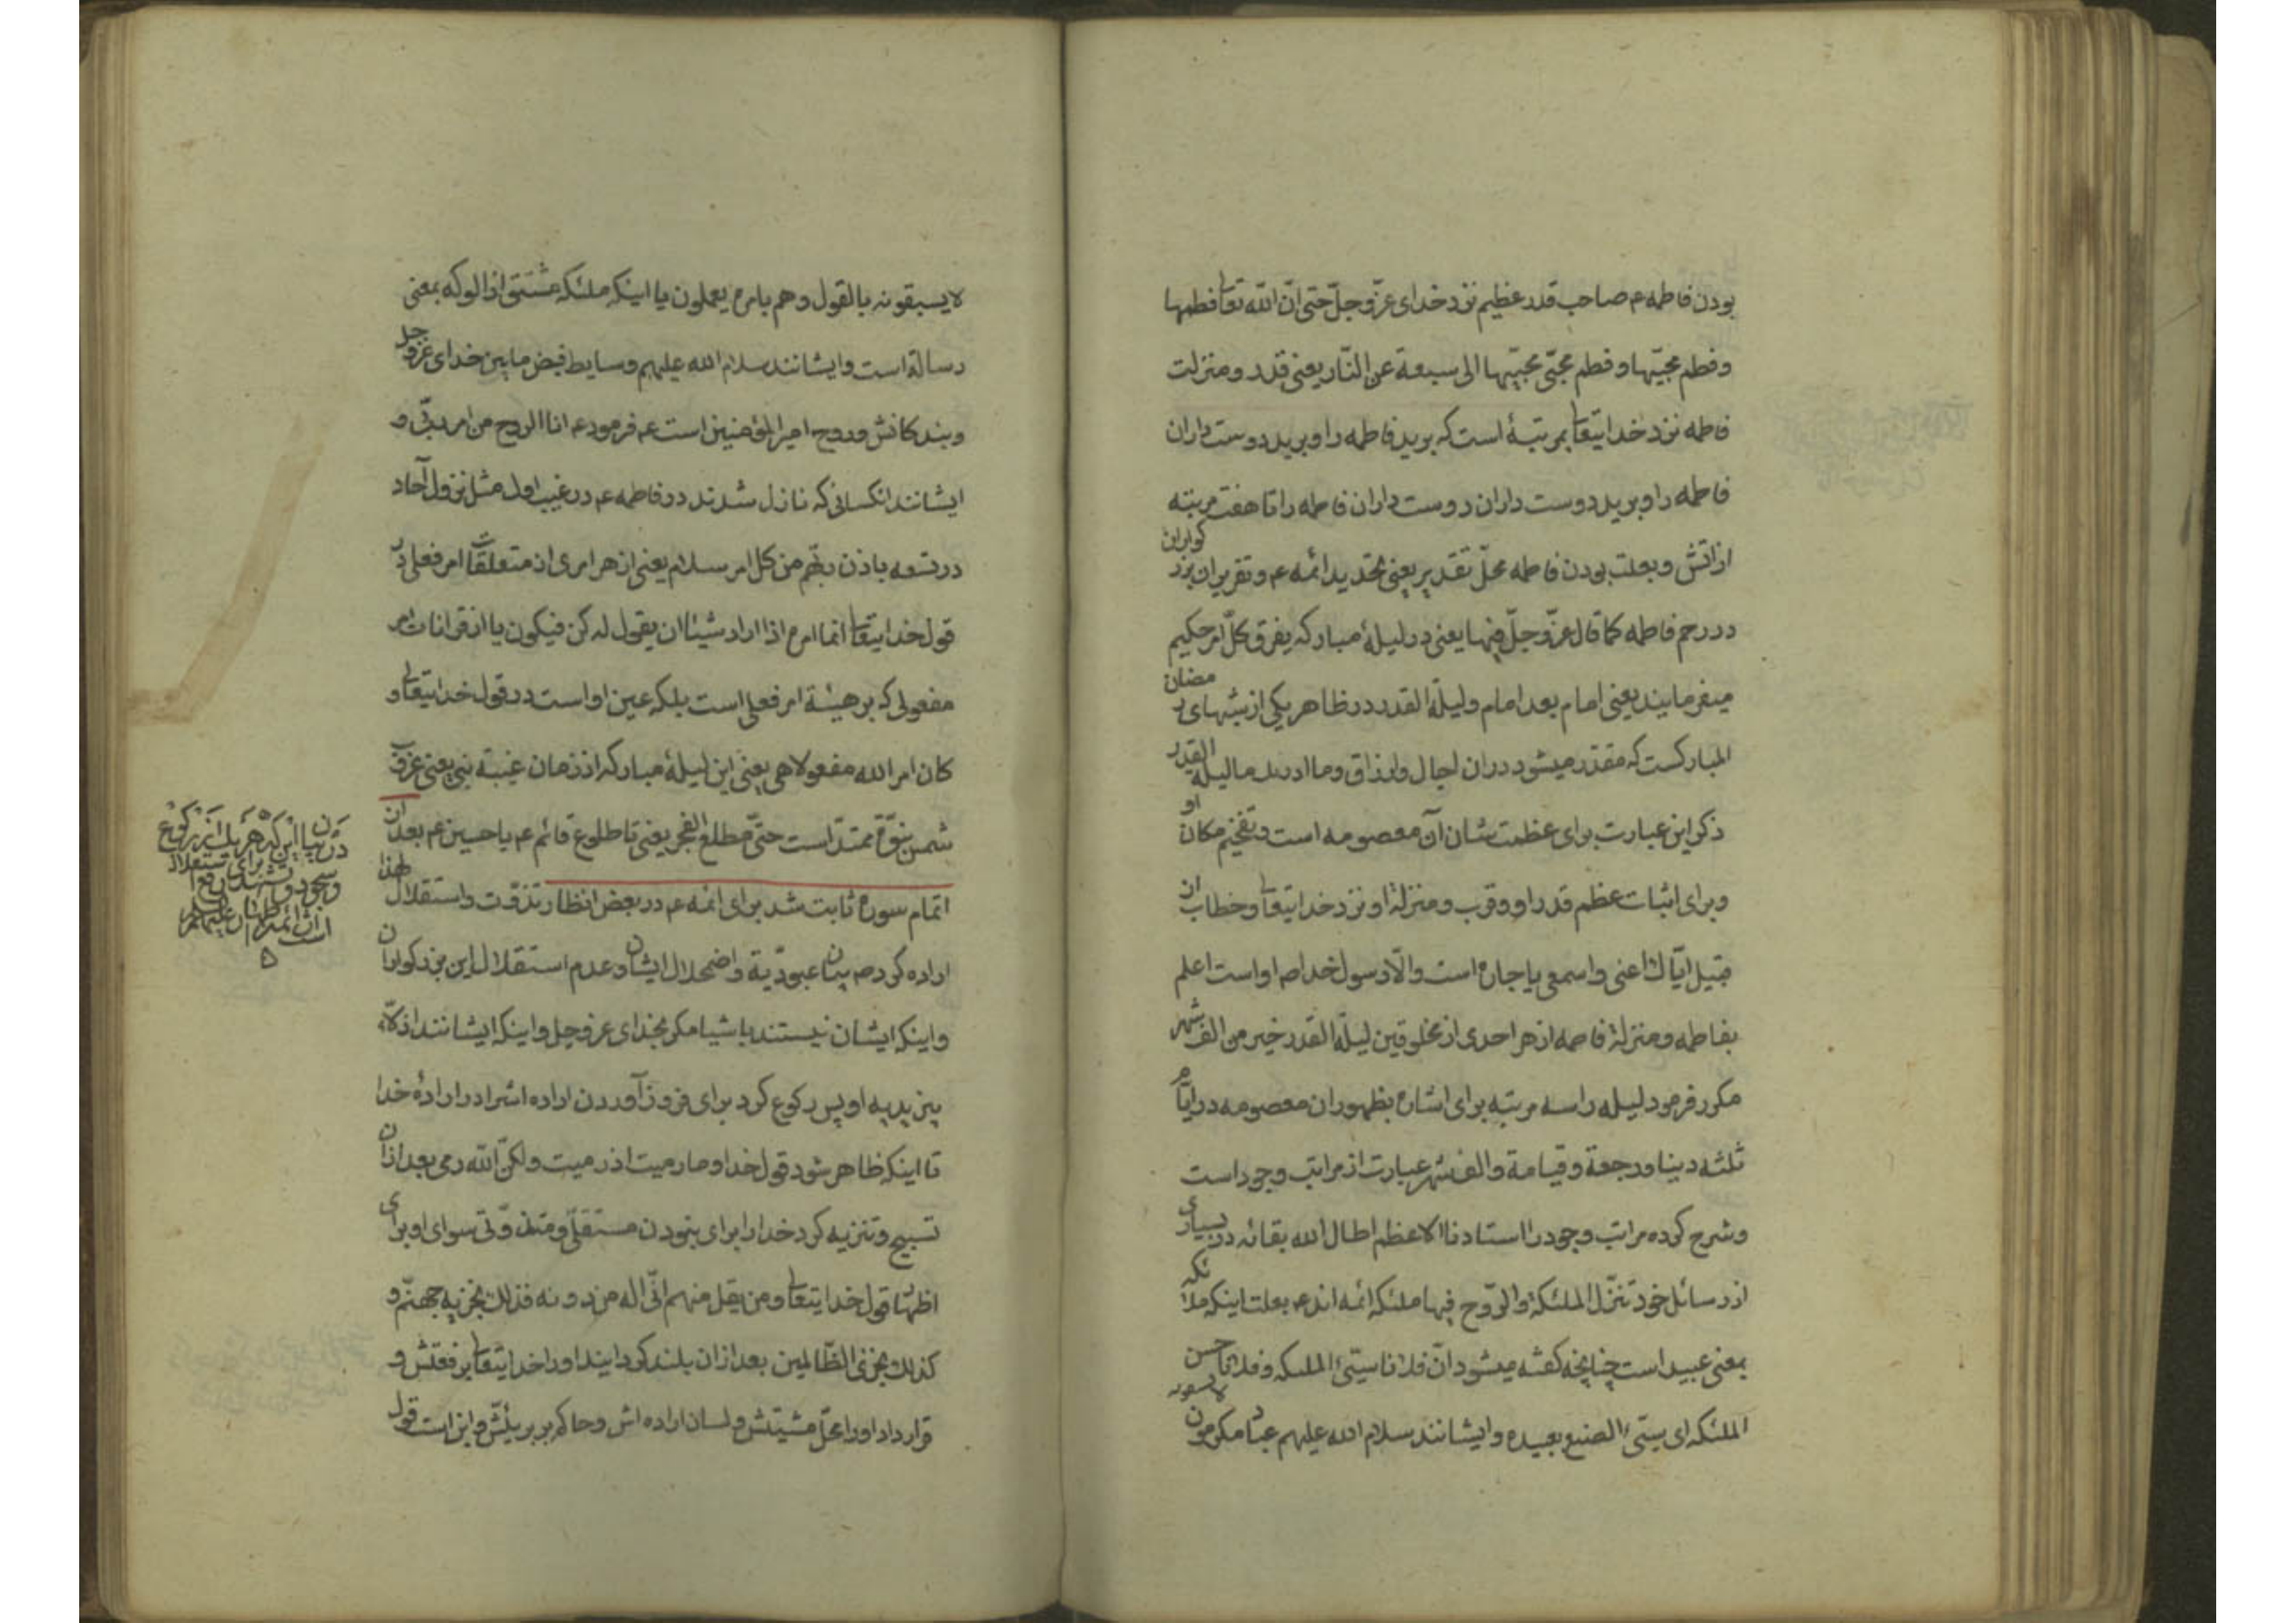 بودن فاطمه ع صاحب قدر عظیم نزد خدای عزّ و جلّ حتی انّ الله تعا فطمها
و فطم محبّیها و فطم محبّی محبّیها الی سبعة عن النّار یعنی قدر و منزلت
فاطمه نزد خدایتعا بمرتبهٔ است که برید فاطمه را و برید دوست داران
فاطمه را و برید دوست داران دوست داران فاطمه را تا هفت مرتبه
از اتش و بعلت بودن فاطمه محلّ تقدیر یعنی تحدید ائمه ع و تقریر ان بزرکواران
در رحم فاطمه کما قال عزّ و جلّ فیها یعنی در لیلهٔ مبارکه یفرق کلّ امر حکیم
میفرمایند یعنی امام بعد امام و لیلة القدر در ظاهر یکی از شبهای رمضان
المبارکست که مقدّر میشود دران اجال و ارزاق و ما ادریک ما لیلة القدر
ذکر این عبارت برای عظمت شان آن معصومه است و تفخیم مکان او
و برای اثبات عظم قدر او و قرب و منزلة او نزد خدایتعا و خطاب ان
قبیل ایّاک اعنی و اسمعی یا جاره است و الّا رسول خدا ص اواست اعلم
بفاطمه و منزلة فاطمه از هر احدی از مخلوقین لیلة القدر خیر من الف شهر
مکرر فرمود لیله را سه مرتبه برای اشاره بظهور ان معصومه در ایّام
ثلثه دینا و رجعة و قیامة و الف شهر عبارت از مراتب وجود است
و شرح کرده مراتب وجود را استادنا الاعظم اطال الله بقائه در بسیاری
از رسائل خود تنزّل الملئکة و الرّوح فیها ملئکه ائمه اند ع بعلت اینکه ملائکه
بمعنی عبید است چنانچه کفته میشود انّ فلانا سیّئ الملکه و فلانا حسن
الملکه ای سیّئ الصنیع بعبیده و ایشانند سلام الله علیهم عباد مکرمون
لا یسبقونه بالقول و هم بامره یعملون یا اینکه ملئکه مشتق از الوکه بمعنی
رسالة است و ایشانند سلام الله علیهم وسایط فیض مابین خدای عزّ و جل
و بندکانش و روح امیر المؤمنین است ع فرمود ع انا الروح من امر ربّی و
ایشانند انکسانی که نازل شدند در فاطمه ع در غیب اول مثل نزول آحاد
در تسعه باذن ربّهم من کل امر سلام یعنی از هر امری از متعلقات امر فعلی در
قول خدایتعا انما امره اذا اراد شیئا ان یقول له کن فیکون یا از قرانات امر
مفعولی که بر هیئة امر فعلی است بلکه عین او است در قول خدایتعا و
کان امر الله مفعولا هی یعنی این لیلهٔ مبارکه از زمان غیبة نبی یعنی غروب
شمس نبوّة ممتدّ است حتّی مطلع الفجر یعنی تا طلوع قائم ع یا حسین ع بعد ان
اتمام سوره ثابت شد برای ائمه ع در بعض انظار تذوّت و استقلال لهذا
اراده کرد ص بیان عبودّیة و اضمحلال ایشان و عدم استقلال این بزرکواران
و اینکه ایشان نیستند باشیا مکر بخدای عز و جل و اینکه ایشانند اذلّاء
بین یدیه او پس رکوع کرد برای فرود آوردن اراده اشرا در ارادهٔ خدا
تا اینکه ظاهر شود قول خدا و ما رمیت اذ رمیت ولکنّ الله رمی بعد از ان
تسبیح و تنزیه کرد خدا را برای نبودن مستقلّی و متذوّتی سوای او برای
اظهار قول خدایتعا و من یقل منهم انّی اله من دونه فذلک نجزیه جهنّم و
کذلک نجزی الظّالمین بعد از ان بلند کردانید او را خدایتعا برفعتش و
قرار داد او را محلّ مشیتش و لسان اراده اش و حاکم بر بریتّش و این است قول
لا یسبقونه
در بیان اینکه هر یک از رکوع
و سجود و تشهد برای رفع استقلال
از ائمه اطهار علیهم السلام
است